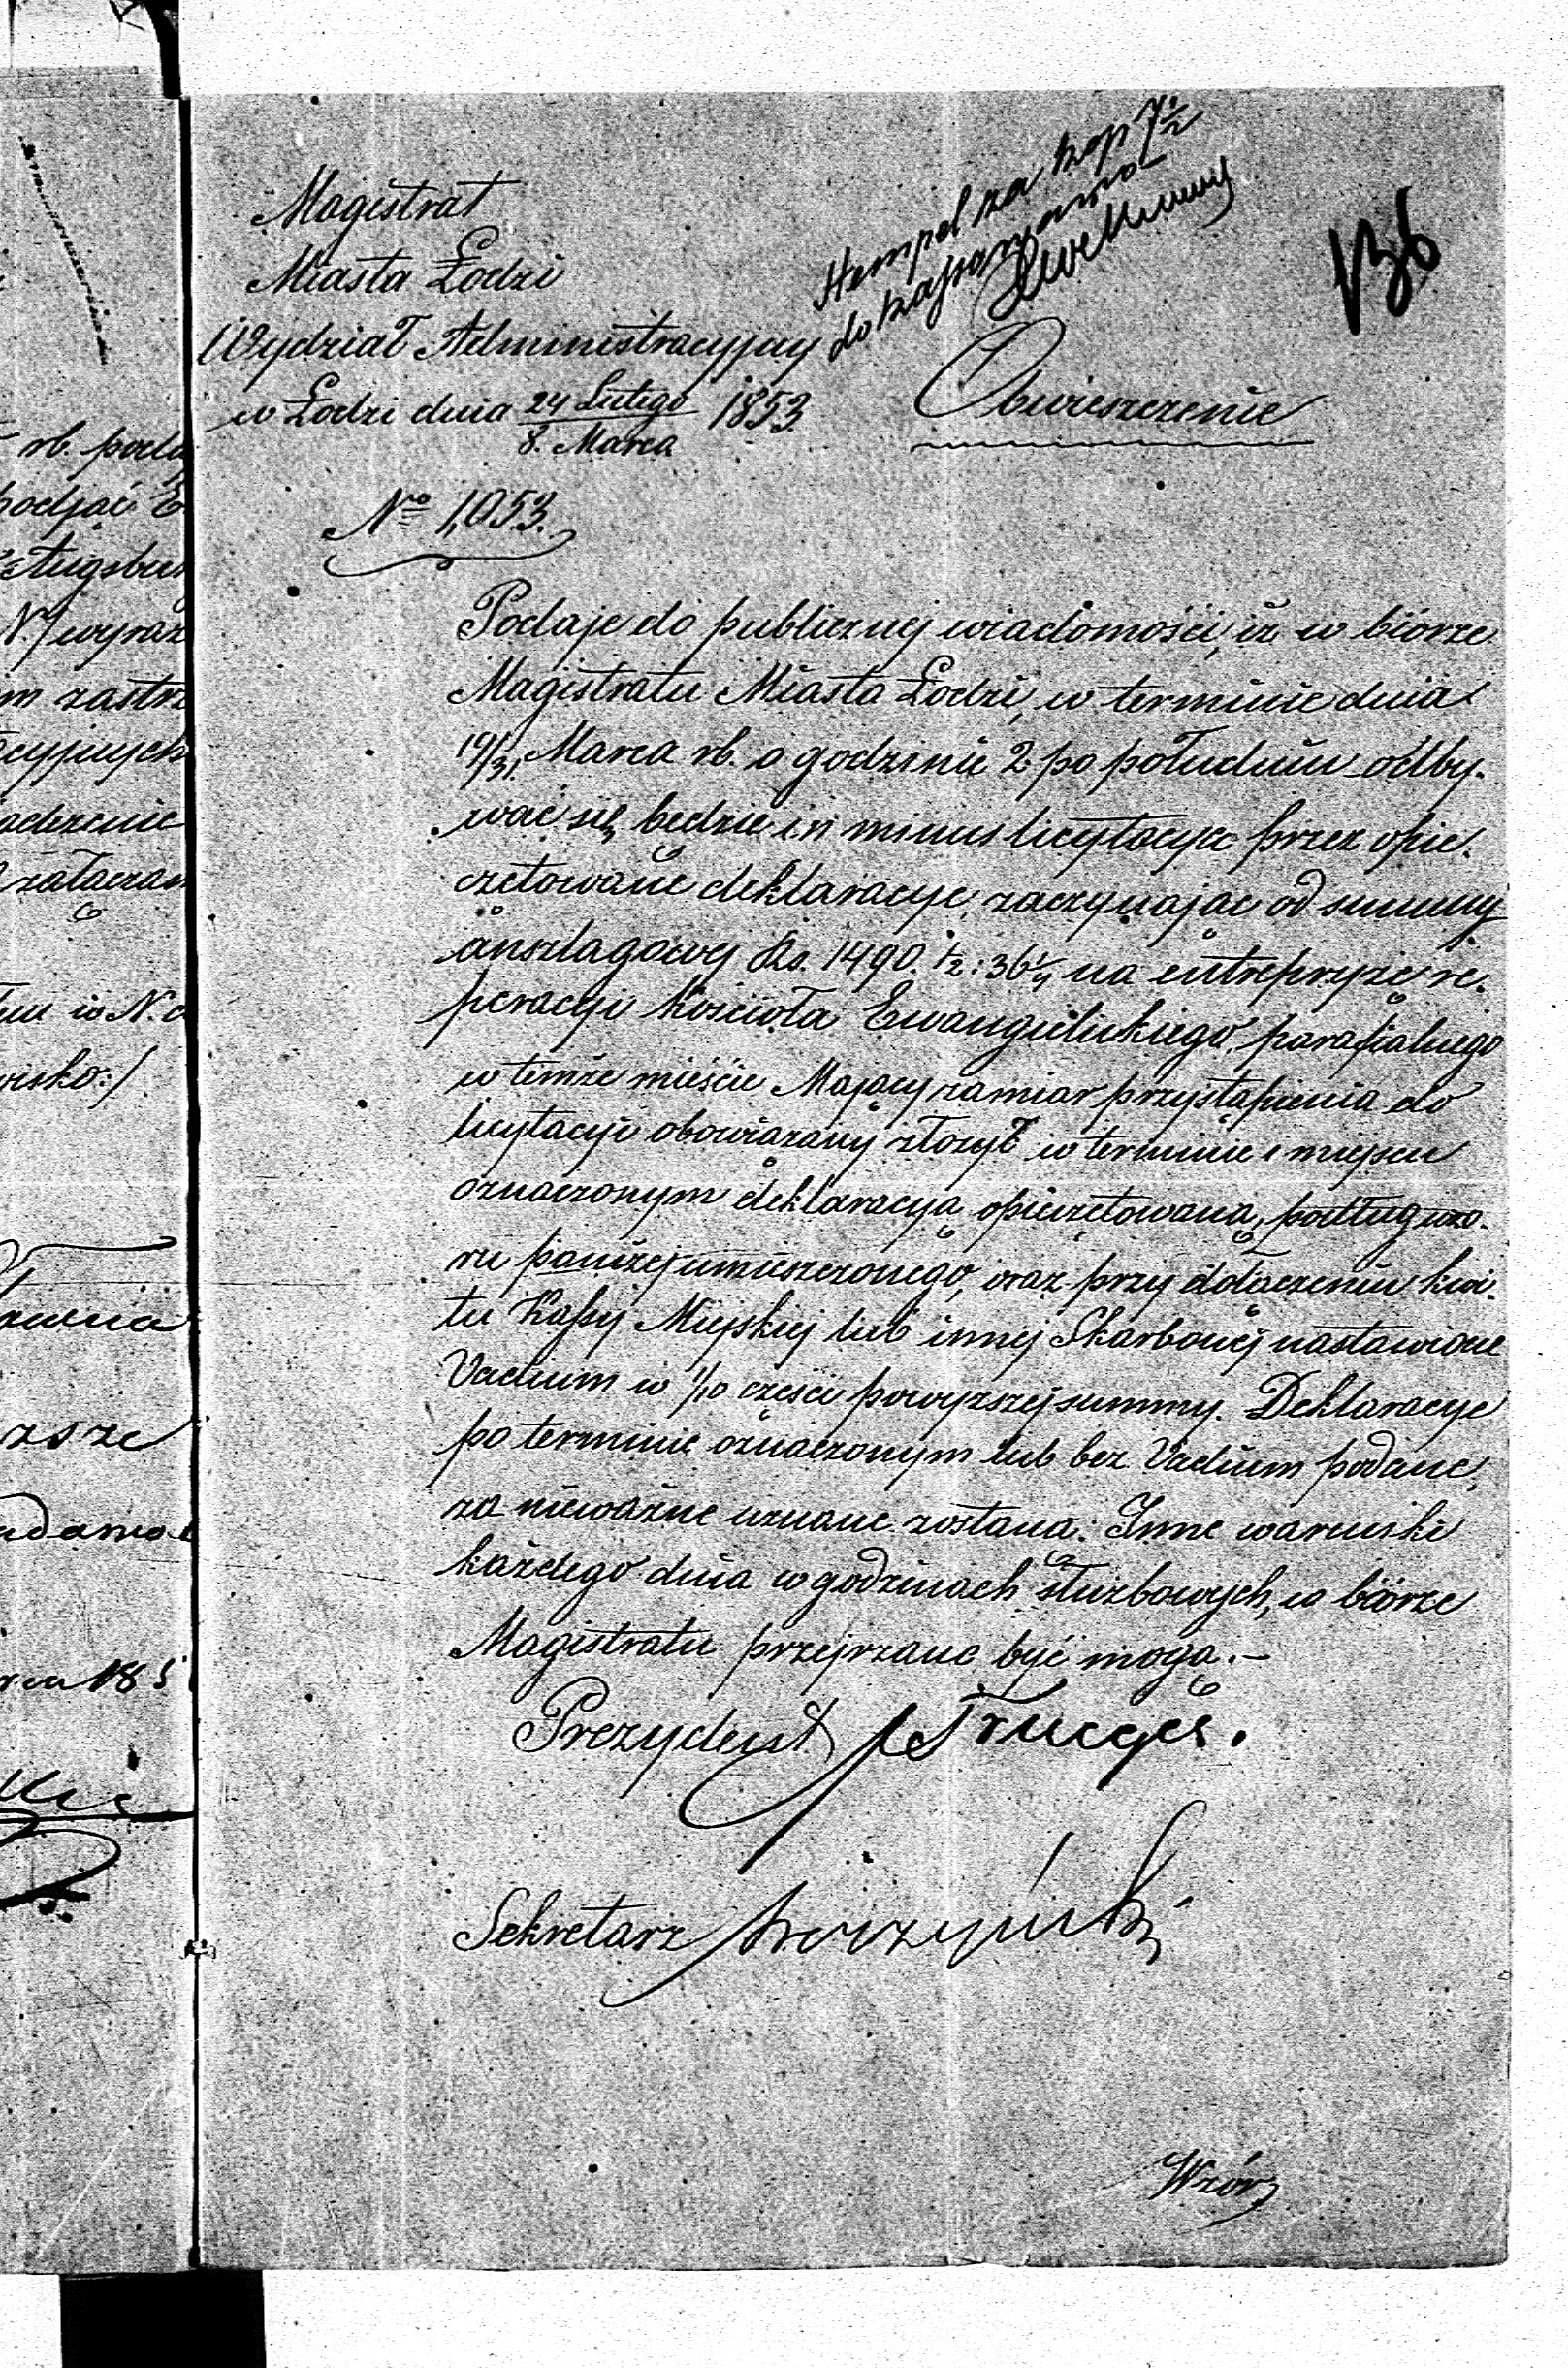 Magistrat
Miasta Łodzi
Wydział Administracyjny
w Łodzi dnia 24 Lutego / 8. Marca 1853
No 1,053.
Stempel za kop 7 1/2
do
136
Obwieszczenie
Podaje do publicznej wiadomości, iż w biórze
Magistratu Miasta Łodzi, w terminie dnia
19/31. Marca rb. o godzinie 2 po południu odby-
wać się będzie in minus licytacya przez opie-
czętowane deklaracye, zaczynając od summy
anszlagowej Rs. 1490. 1/2: 36 1/4 na entrepryzę re-
peracyi kościoła Ewangielickiego, parafialnego
w temże mieście. Mający zamiar przystąpienia do
licytacyi obowiązany złożyć w terminie i miejscu
oznaczonym deklaracyą opieczętowaną, podług wzo-
ru poniżej umieszczonego, oraz przy dołączeniu kwi-
tu Kassy Miejskiej lub innej Skarbowej na stawione
Vadium w 1/10 części powyższej summy. Deklaracye
po terminie oznaczonym lub bez Vadium podane,
za nieważne uznane zostaną: Inne warunki
każdego dnia w godzinach służbowych, w biórze
Magistratu przejrzane być mogą.–
Prezydent Traeger.
Sekretarz
Wzór
rb. poda
podjąć
Augsbur
wyraz
m zastrz
acyjnych
adczenie
załączam
w N. d
wisko:/